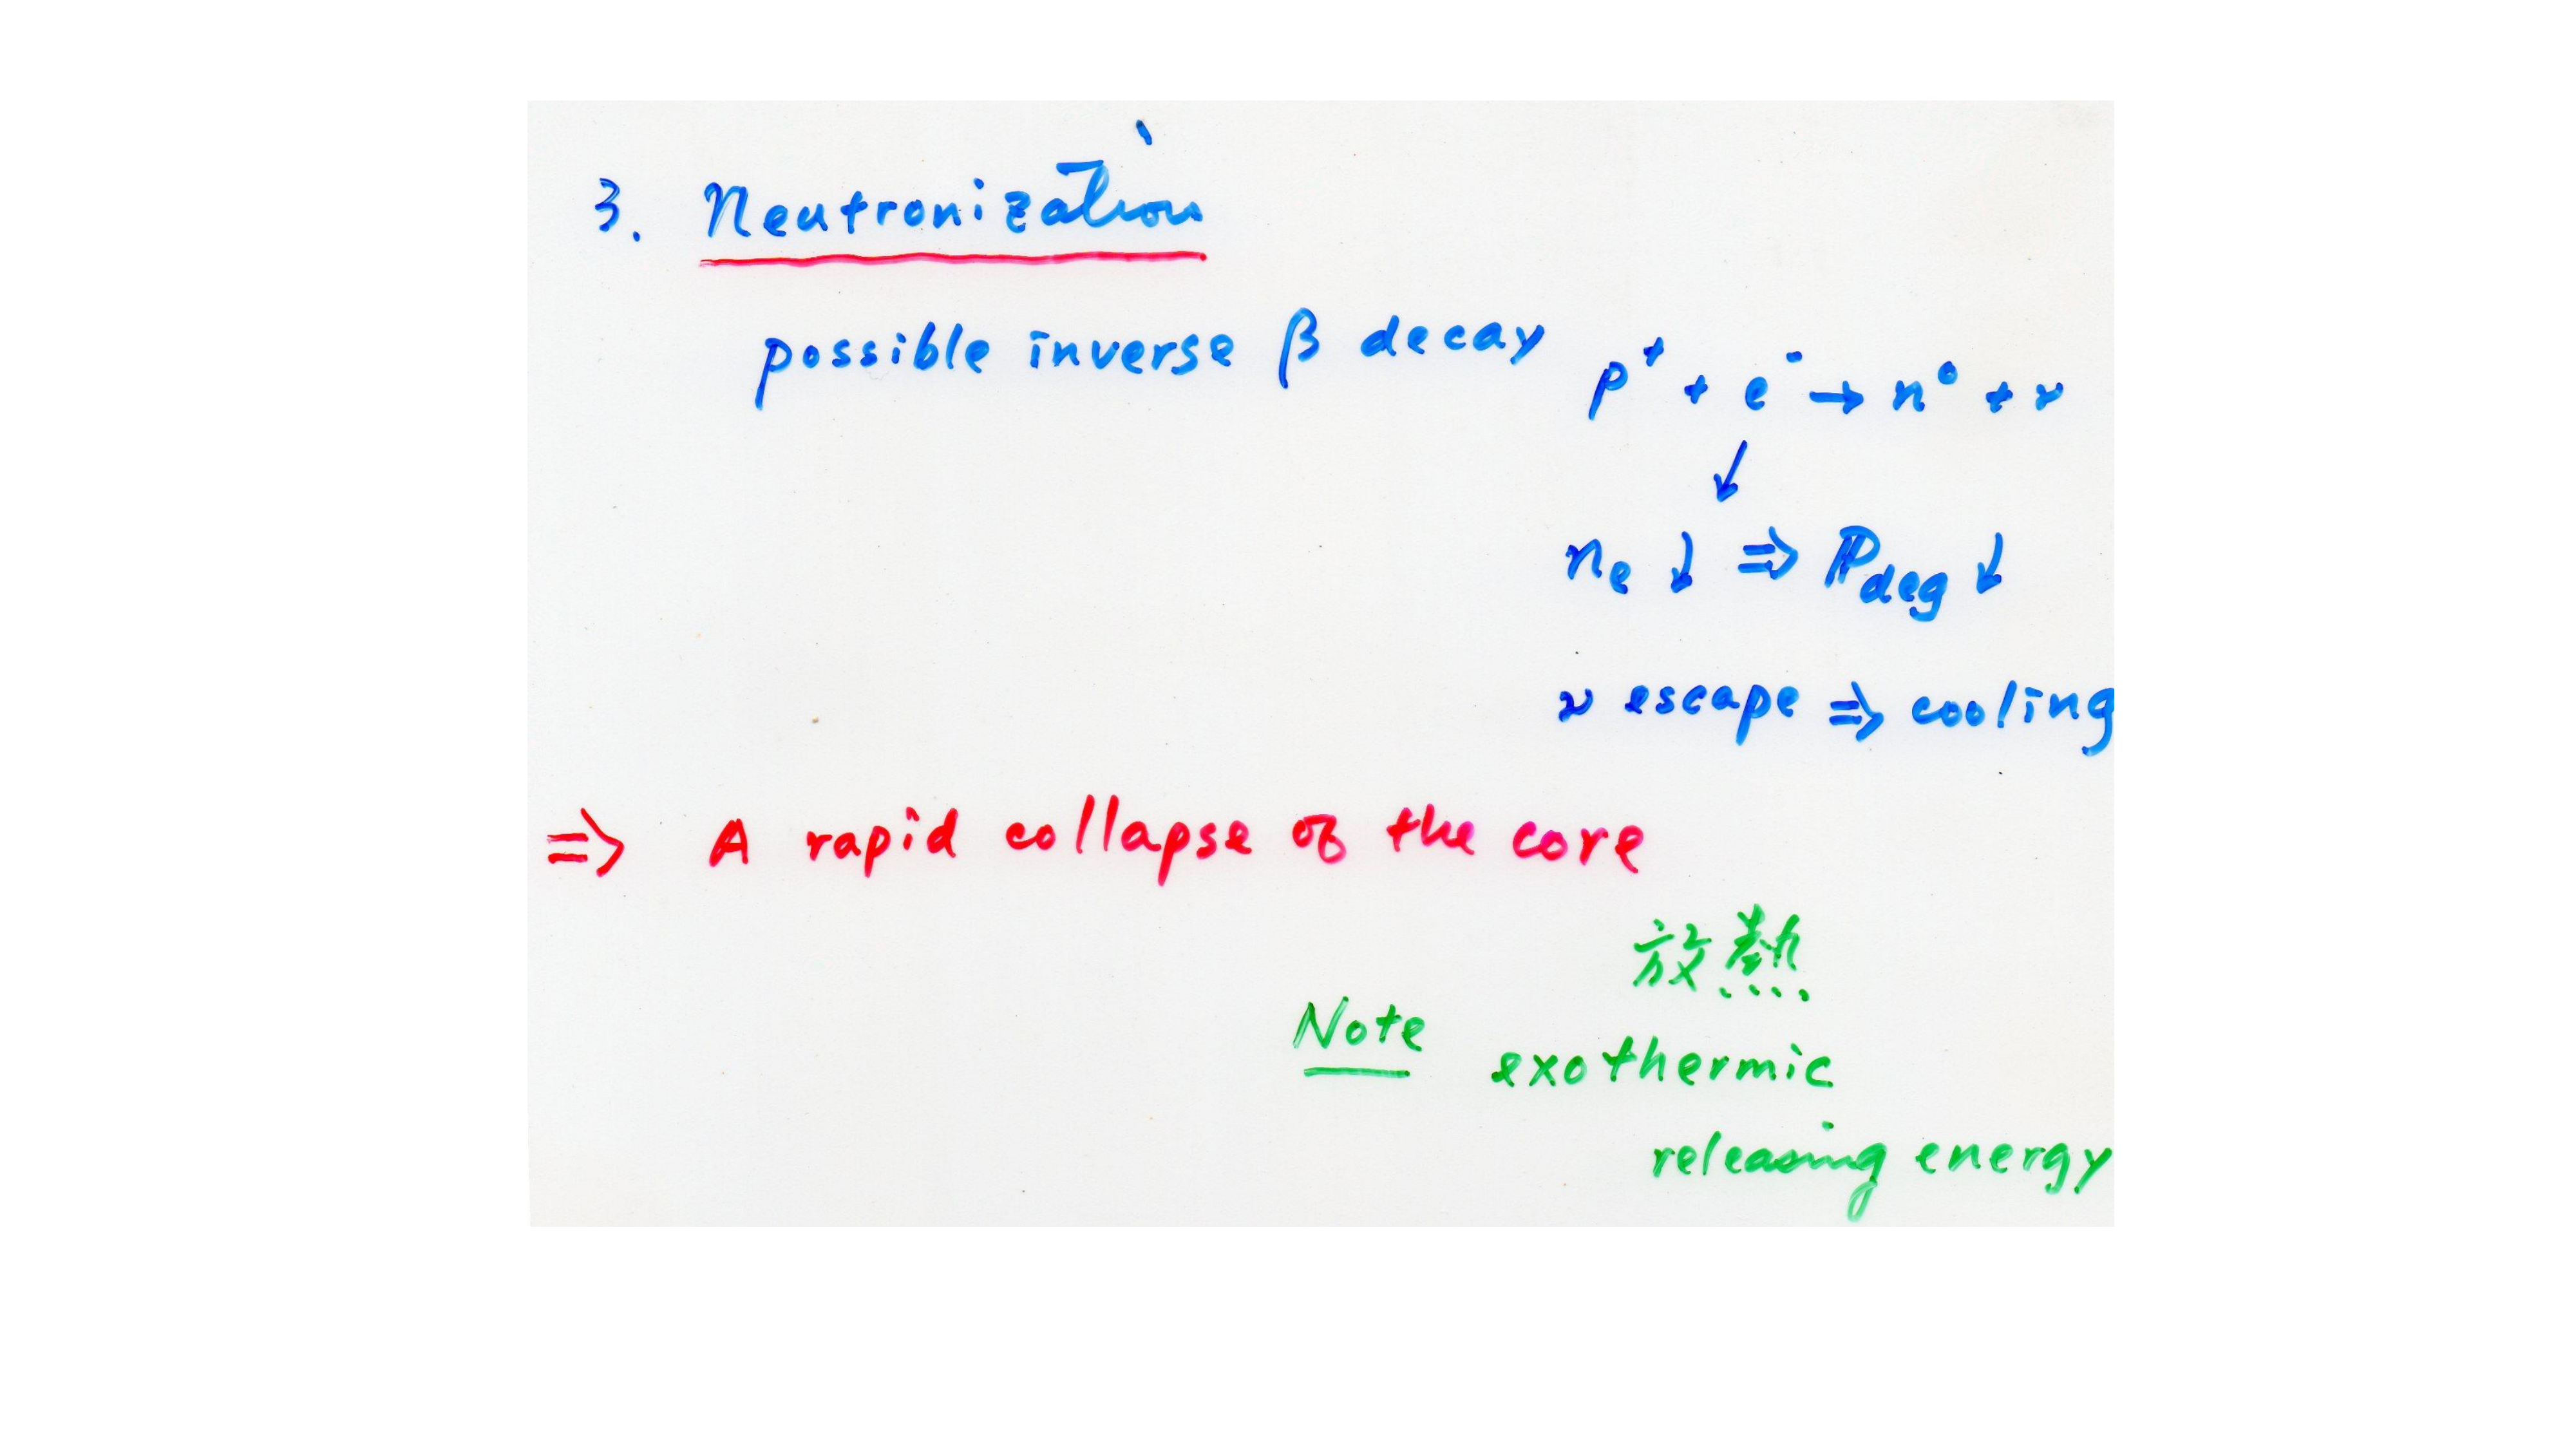 3. Neutronization
possible inverse β decay p⁺ + e⁻ → n⁰ + ν
↓
nₑ ↓ ⇒ P_deg ↓
ν escape ⇒ cooling
⇒ A rapid collapse of the core
放熱
Note exothermic
releasing energy